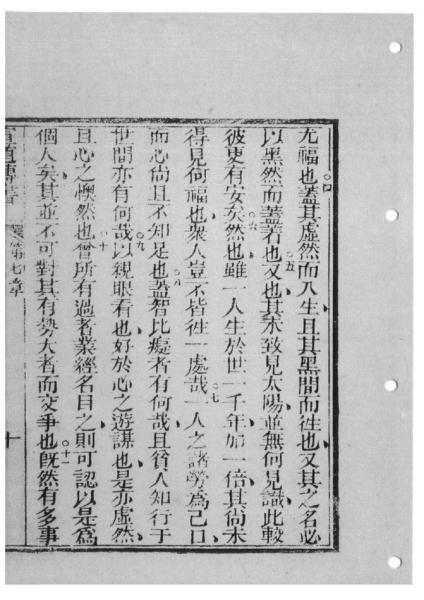 尤福也蓋其虛然而入生且其黑闇而徃也又其之名必
以黑然而蓋若也又也其未致見太陽並無何見識此較
彼更有安矣然也雖一人生於世一千年加一倍其尚未
得見何福也衆人豈不皆徃一處哉一人之諸勞為己口
而心尚且不知足也蓋智比癡者有何哉且貧人知行于
世間亦有何哉以親眼看也好於心之遊謀也是亦虛然
且心之懊然也曾所有過者業經名目之則可認以是為
個人矣其並不可對其有勢大者而交爭也旣然有多事
第七章
十